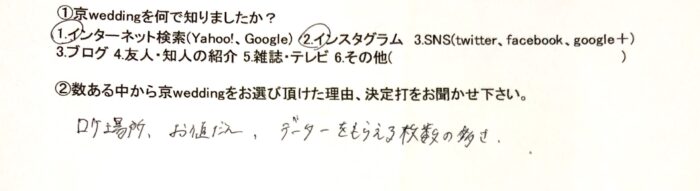 ①京weddingを何で知りましたか？
1.インターネット検索(Yahoo!、Google) 2.インスタグラム 3.SNS(twitter、facebook、google＋)
3.ブログ 4.友人・知人の紹介 5.雑誌・テレビ 6.その他( )
②数ある中から京weddingをお選び頂けた理由、決定打をお聞かせ下さい。
ロケ場所、お値だん、データーをもらえる枚数の多さ.